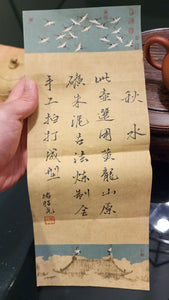 秋水
此壶选用黄龙山原
矿朱泥古法炼制全
手工拍打成型